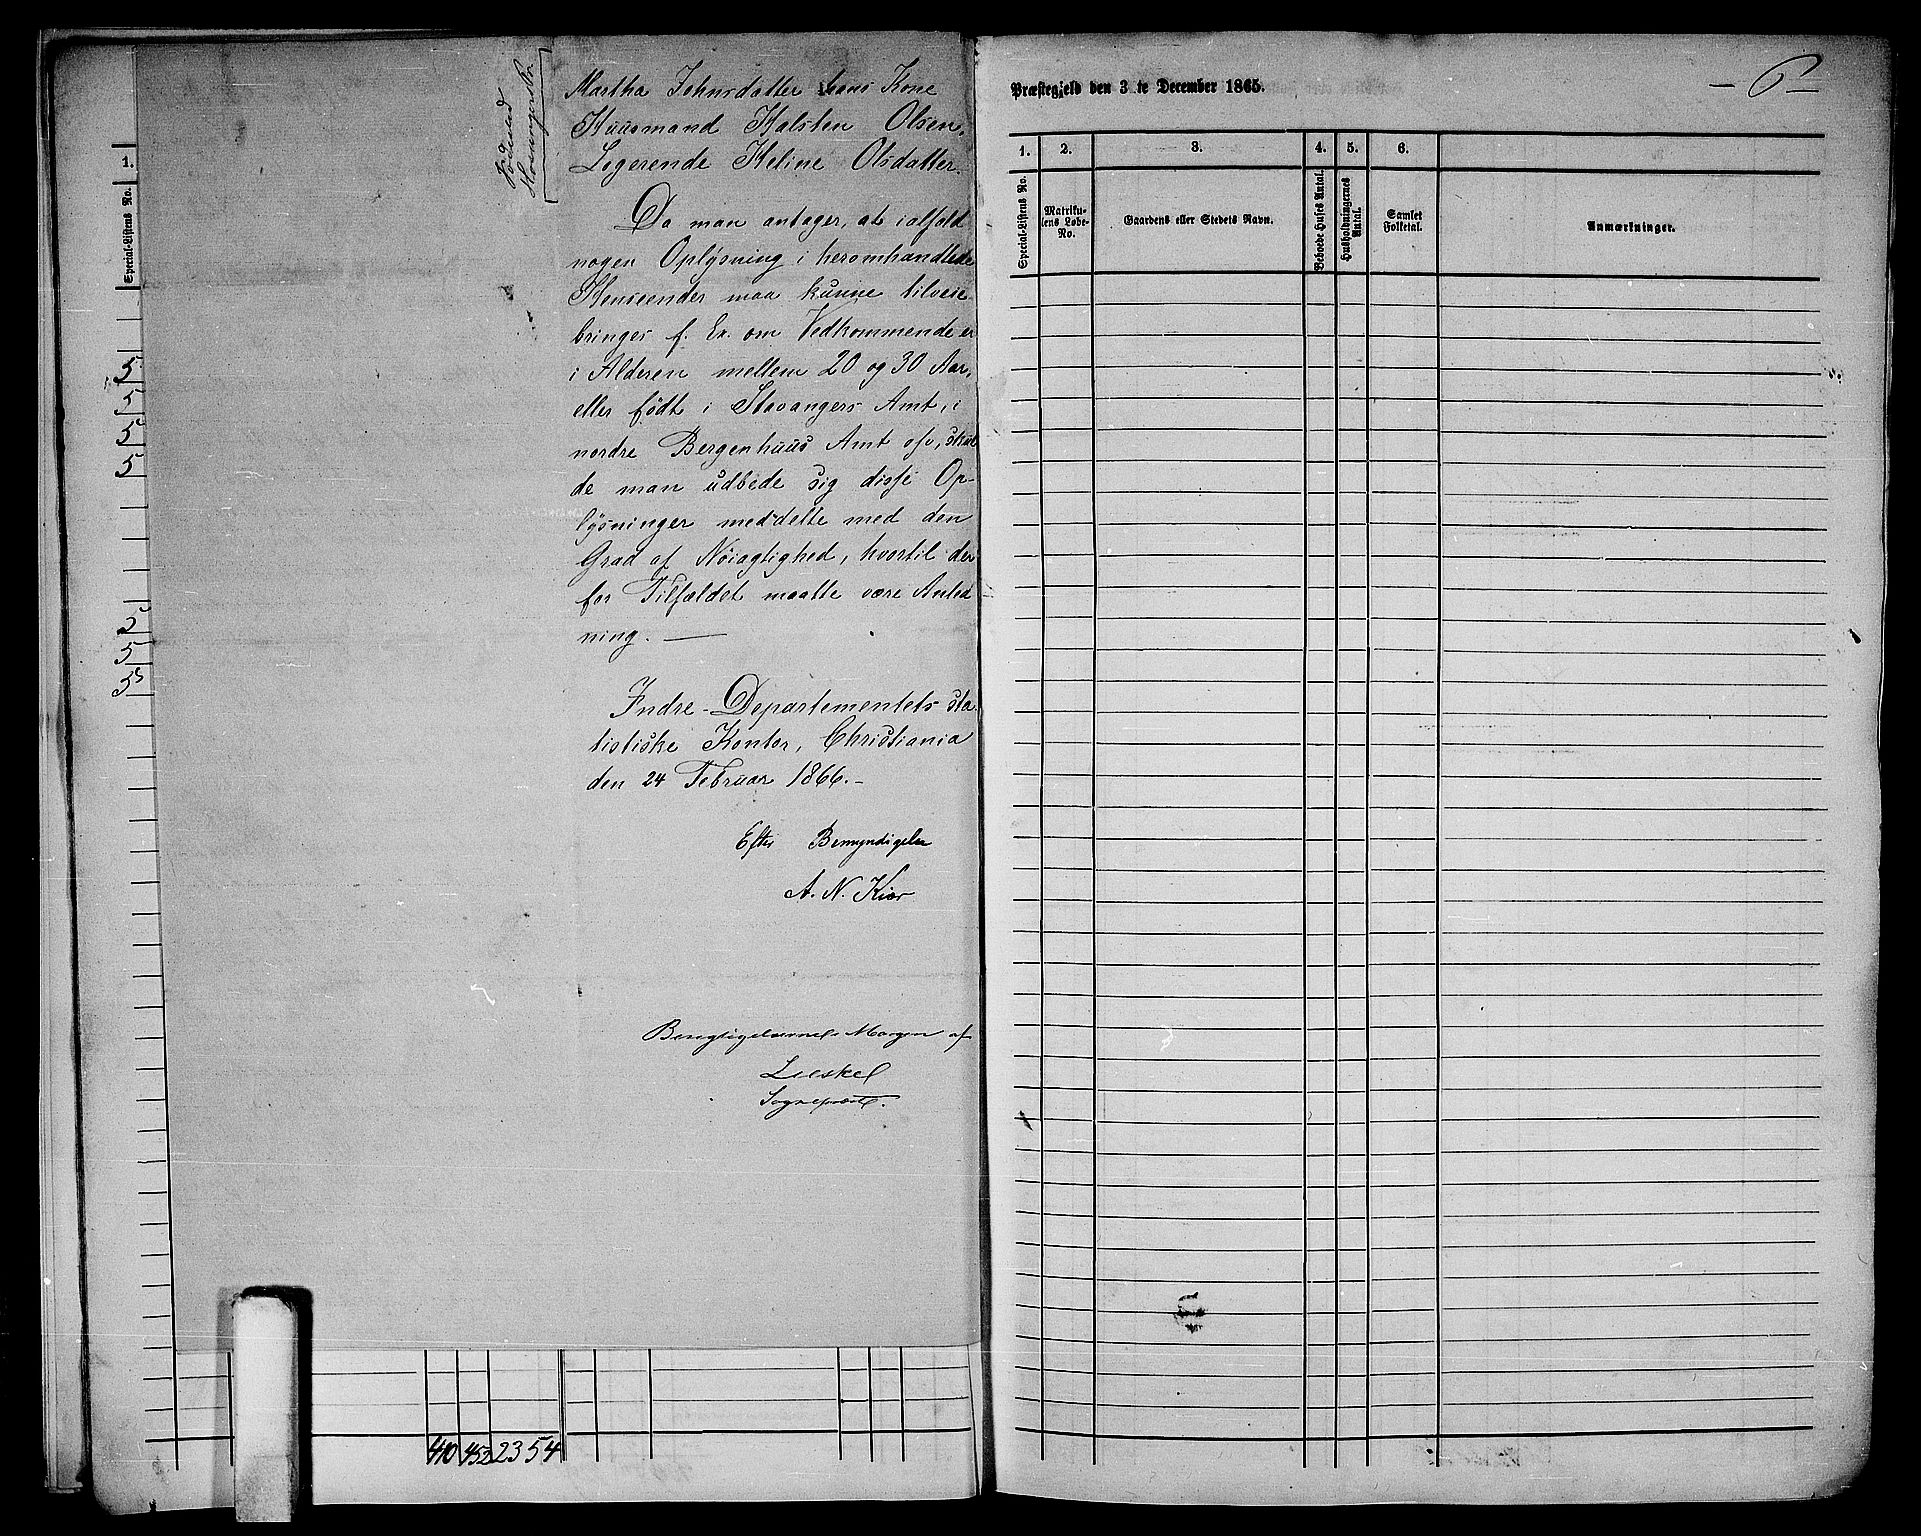 1.
Special-Listens No.
5
5
5
5
5
5
5
Martha Johnsdatter hans Kone
Huusmand Halsten Olsen.
Logerende Heline Olsdatter.
Da man antager, at ialfald
nogen Oplysning i heromhandlede
Henseender maa kunne tilveie-
bringes f. Ex. om Vedkommende er
i Alderen mellem 20 og 30 Aar,
eller født i Stavangers Amt, i
nordre Bergenhuus Amt osv, skul
de man udbede sig disse Op-
lysninger meddelte med den
Grad af Nøiagtighed, hvortil der
for Tilfældet maatte være Anled
ning. —
Indre-Departementets sta
tistiske Kontor, Christiania
den 24 Februar 1866.-
Efter Bemyndigelse
A. N. Kiær
Margen af
Sognepræst.
410 452 2354
Præstegjeld den 3 te December 1865.
- 6 -
1. 2. 3. 4. 5. 6.
Special-Listens No.
Matriku-
lens Løbe-
No.
Gaardens eller Stedets Navn.
Beboede Huses Antal.
Husholdningernes
Antal.
Samlet
Folketal.
Anmærkninger.